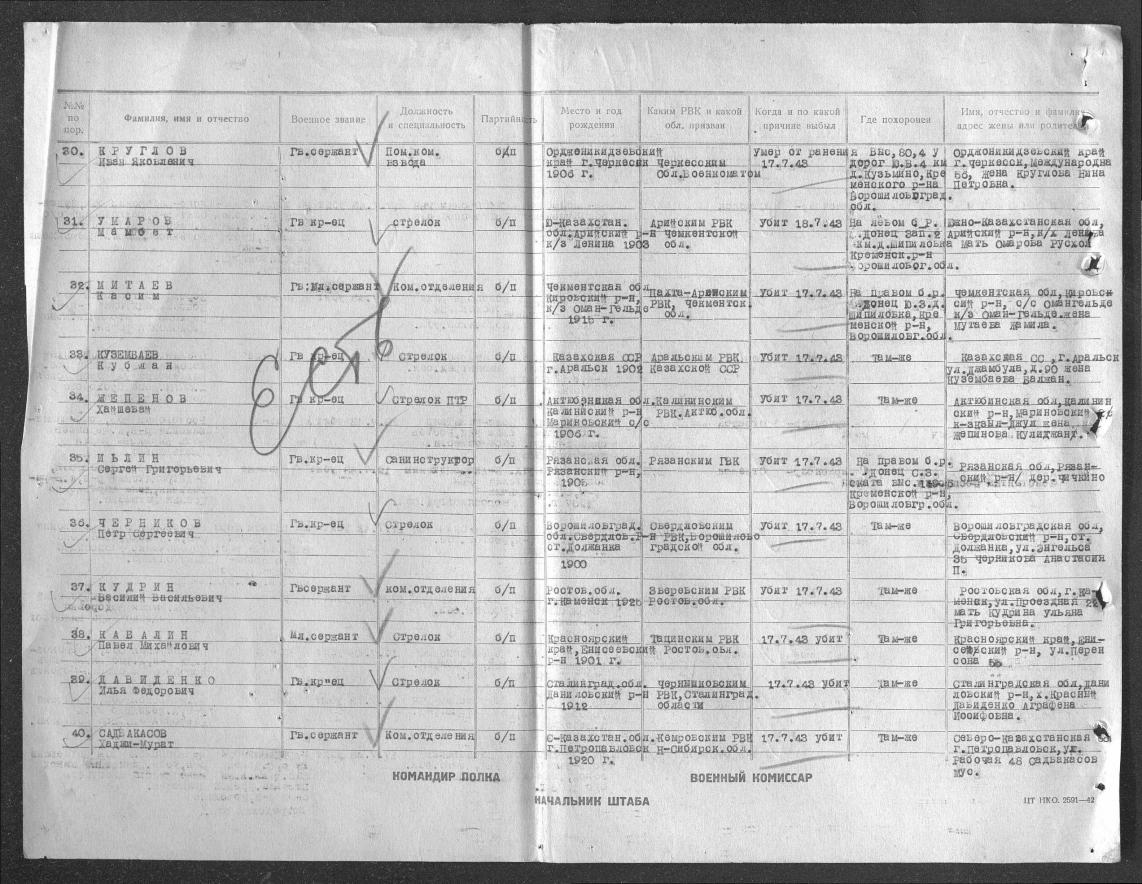 №№ по пор. Фамилия, имя и отчество Военное звание Должность и специальность Партийность Место и год рождения Каким РВК и какой обл. призван Когда и по какой причине выбыл Где похоронен Имя, отчество и фамилия адрес жены или родителей
30. КРУГЛОВ Гв.сержант Пом.ком. б/п Ордженикидзевский Умер от ранения Выс,80,4 у Орджоникидзевский край
Иван Яковлевич взвода край г.Черкеск Черкесским 17.7.43 дорог Ю.В.4 км г.Черкесск,Международна
1906 г. Обл.Военкоматом д.Кузьмино,Кре 56, жена Круглова Нина
менского р-на Петровна.
Ворошиловград.
обл.
31. УМАРОВ Гв кр-ец стрелок б/п Ю-Казахстан. Арийским РВК Убит 18.7.43 На левом б.Р. Южно-Казахстанская обл,
Мамбет обл.Арийский р-н Чемкентской С.Донец Зап.2 Арийский р-н,к/х Ленина
к/з Ленина 1903 обл. км.д.Шипиловка Мать Омарова Русхол
Кременск.р-н
Ворошиловог.обл.
32. МИТАЕВ Гв.Мл.сержант Ком.отделения б/п Чекментская обл. Пахта-Аренским Убит 17.7.43 На правом б.р. Чемкентская обл,Кировск-
Касим Кировский р-н, РВК, Чекментск. С.Донец Ю.З.д. ский р-н, с/с Омангельде
к/з Оман-Гельде обл. Шипиловка,Кре к/з Оман-Гельде.жена
1915 г. менской р-н, Мутаева Жамила.
Ворошиловг.обл.
33. КУЗЕМБАЕВ Гв кр-ец Стрелок б/п Казахская ССР Аральским РВК Убит 17.7.43 Там-же Казахская СС ,г.Аральск
Кублан г.Аральск 1902 Казахской ССР ул.Джамбула,д.90 жена
Кузембаева Балжан.
Есть
34. ЖЕПЕНОВ Гв кр-ец Стрелок ПТР б/п Актюбинская обл.Калининским Убит 17.7.43 Там-же Актюбинская обл,Калинин
Хайшевай Калинский р-н РВК.Актюб.обл. ский р-н,Мариновский
Мариновский с/с к-Кзыл-Джул жена
1906 г. Жепинова Кулиджант.
35. ИЬЛИН Гв.кр-ец Санинструктор б/п Рязанская обл. Рязанским ГВК Убит 17.7.43 На правом б.р. Рязанская обл,Рязан-
Сергей Григорьевич Рязанский р-н, С.Донец С.З. ский р-н/ дер.Чичкино
1905 ската выс.
Кременской р-н,
Ворошиловгр.обл.
36. ЧЕРНИКОВ Гв.кр-ец Стрелок б/п Ворошиловград. Свердловским Убит 17.7.43 Там-же Ворошиловградская обл,
Петр Сергеевич обл.Свердлов.Р-н РВК,Ворошилово Свердловский р-н,ст.
ст.Должанка градской обл. Должанка,ул.Энгельса
1900 35 Черникова Анастасия
П.
37. КУДРИН Гвсержант ком.отделения б/п Ростов.обл. Зверевским РВК Убит 17.7.43 Там-же Ростовская обл,г.Ка-
Василий Васильевич г.Каменск 1925 Ростов.обл. менск,ул.Проездная 22
мать Кудрина Ульяна
Григорьевна.
38. КАВАЛИН Мл.сержант Стрелок б/п Красноярский Тацинским РВК 17.7.43 убит Там-же Красноярский край,Ени-
Павел Михайлович край,Енисеевский Ростов.обл. сейвский р-н, ул.Перен
р-н 1901 г. сона 55
39. ДАВИДЕНКО Гв.кр-ец Стрелок б/п Сталинград.обл. Чернышковским 17.7.43 убит Там-же Сталинградская обл,Дани
Илья Федорович Даниловский р-н РВК,Сталинград. ловский р-н,х.Красный
1912 области Давиденко Аграфена
Иосифовна.
40. САДВАКАСОВ Гв.сержант Ком.отделения б/п С-Казахстан.обл.Кемровским РВК 17.7.43 убит Там-же Северо-Казахстанская
Хаджи-Мурат г.Петропавловск Н-Сибирск.обл. г.Петропавловск,ул.
1920 г. Рабочая 48 Садвакасов
Мус.
КОМАНДИР ПОЛКА ВОЕННЫЙ КОМИССАР
НАЧАЛЬНИК ШТАБА ЦТ НКО. 2591—42